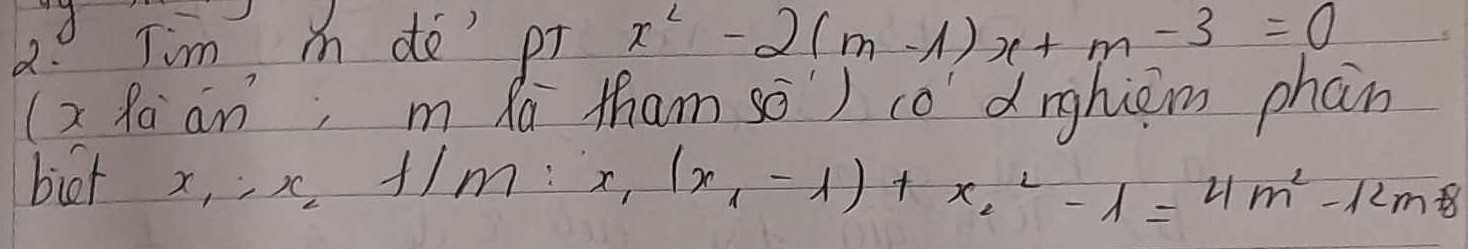 2. Tìm m để pt x² - 2(m - 1)x + m - 3 = 0
(x là ẩn ; m là tham số) có 2 nghiệm phân
biệt x₁ ; x₂ t/m : x₁(x₁ - 1) + x₂² - 1 = 4m² - 12m + 8